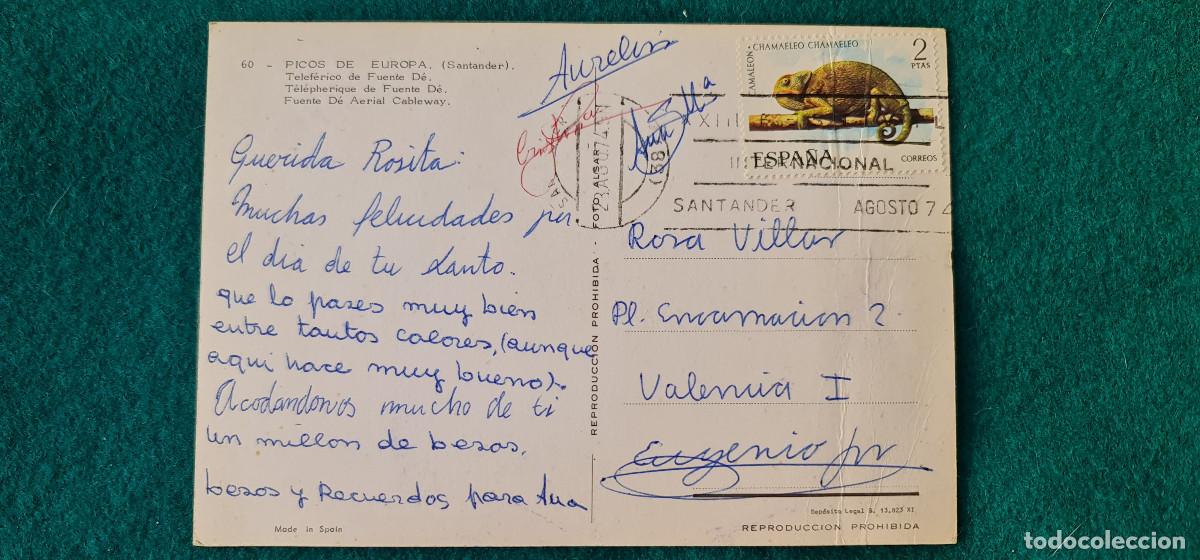 60 - PICOS DE EUROPA. (Santander).
Teleférico de Fuente Dé.
Télépherique de Fuente Dé.
Fuente Dé Aerial Cableway.
Aurelia
Cristina
Querida Rosita:
Muchas felicidades por
el dia de tu santo.
que lo pases muy bien
entre tantos calores, (aunque
aqui hace muy bueno).
Acodandonos mucho de ti
un millon de besos.
besos y Recuerdos para Ana
Made in Spain
REPRODUCCIÓN PROHIBIDA - FOTO ALISAR
CAMALEON • CHAMAELEO CHAMAELEO
2
PTAS
ESPAÑA
CORREOS
XXIII
INTERNACIONAL
SANTANDER AGOSTO 74
Rosa Villar
Pl. Encarnacion 2.
Valencia I
Eugenio
Depósito Legal B. 13.823 XI
REPRODUCCION PROHIBIDA
todocoleccion